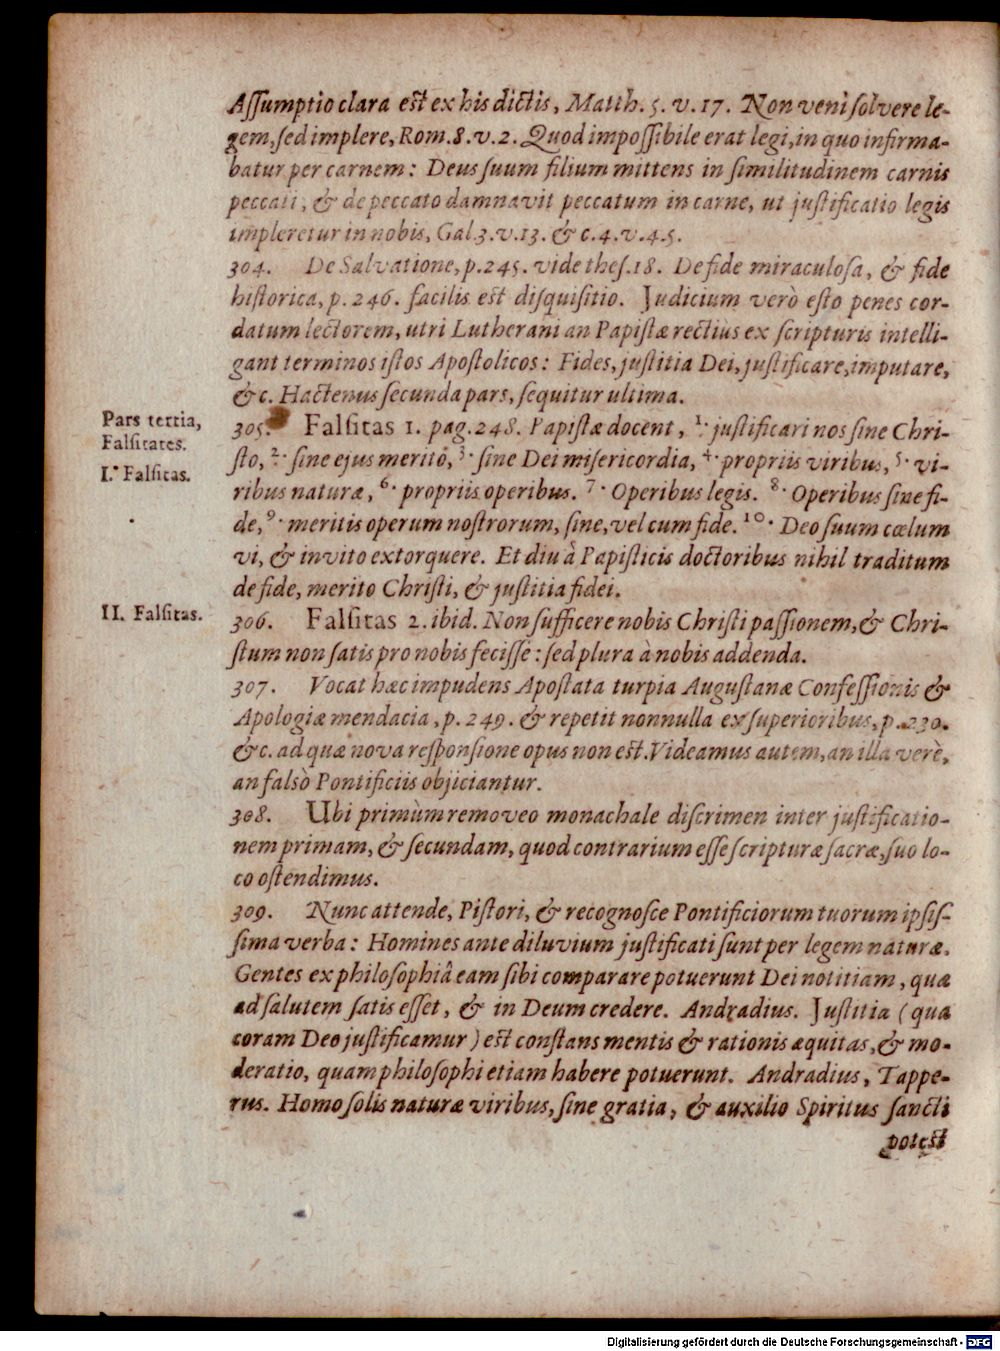 Aſſumptio clara est ex his dictis, Matth. 5. v. 17. Non veni ſolvere le-
gem, ſed implere, Rom. 8. v. 2. Quod impoſſibile erat legi, in quo infirma-
batur per carnem: Deus ſuum filium mittens in ſimilitudinem carnis
peccati, & de peccato damnavit peccatum in carne, ut juſtificatio legis
impleretur in nobis, Gal 3. v. 13. & c. 4. v. 4. 5.
304. De Salvatione, p. 245. vide theſ. 18. De fide miraculoſa, & fide
hiſtorica, p. 246. facilis est diſquiſitio. Judicium verò eſto penes cor-
datum lectorem, utri Lutherani an Papiſtæ rectiùs ex ſcripturis intelli-
gant terminos iſtos Apoſtolicos: Fides, juſtitia Dei, juſtificare, imputare,
&c. Hactenus ſecunda pars, ſequitur ultima.
Pars tertia,
Falſitates.
I. Falſitas.
305. Falſitas 1. pag. 248. Papiſtæ docent, 1. juſtificari nos ſine Chri-
ſto, 2. ſine ejus meritô, 3. ſine Dei miſericordia, 4. propriis viribus, 5. vi-
ribus naturæ, 6. propriis operibus. 7. Operibus legis. 8. Operibus ſine fi-
de, 9. meritis operum noſtrorum, ſine, vel cum fide. 10. Deo ſuum cœlum
vi, & invito extorquere. Et diu à Papiſticis doctoribus nihil traditum
de fide, merito Chriſti, & juſtitia fidei.
II. Falſitas.
306. Falſitas 2. ibid. Non ſufficere nobis Chriſti paſſionem, & Chri-
ſtum non ſatis pro nobis feciſſe: ſed plura à nobis addenda.
307. Vocat hæc impudens Apoſtata turpia Auguſtanæ Confeſſionis &
Apologiæ mendacia, p. 249. & repetit nonnulla ex ſuperioribus, p. 230.
&c. ad quæ nova reſponſione opus non est. Videamus autem, an illa verè,
an falsò Pontificiis objiciantur.
308. Ubi primùm removeo monachale diſcrimen inter juſtificatio-
nem primam, & ſecundam, quod contrarium eſſe ſcripturæ ſacræ, ſuo lo-
co oſtendimus.
309. Nunc attende, Piſtori, & recognoſce Pontificiorum tuorum ipſiſ-
ſima verba: Homines ante diluvium juſtificati ſunt per legem naturæ.
Gentes ex philoſophiâ eam ſibi comparare potuerunt Dei notitiam, quæ
ad ſalutem ſatis eſſet, & in Deum credere. Andradius. Juſtitia (qua
coram Deo juſtificamur) est conſtans mentis & rationis æquitas, & mo-
deratio, quam philoſophi etiam habere potuerunt. Andradius, Tappe-
rus. Homo ſolis naturæ viribus, ſine gratia, & auxilio Spiritus ſancti
potest
Digitalisierung gefördert durch die Deutsche Forschungsgemeinschaft - DFG